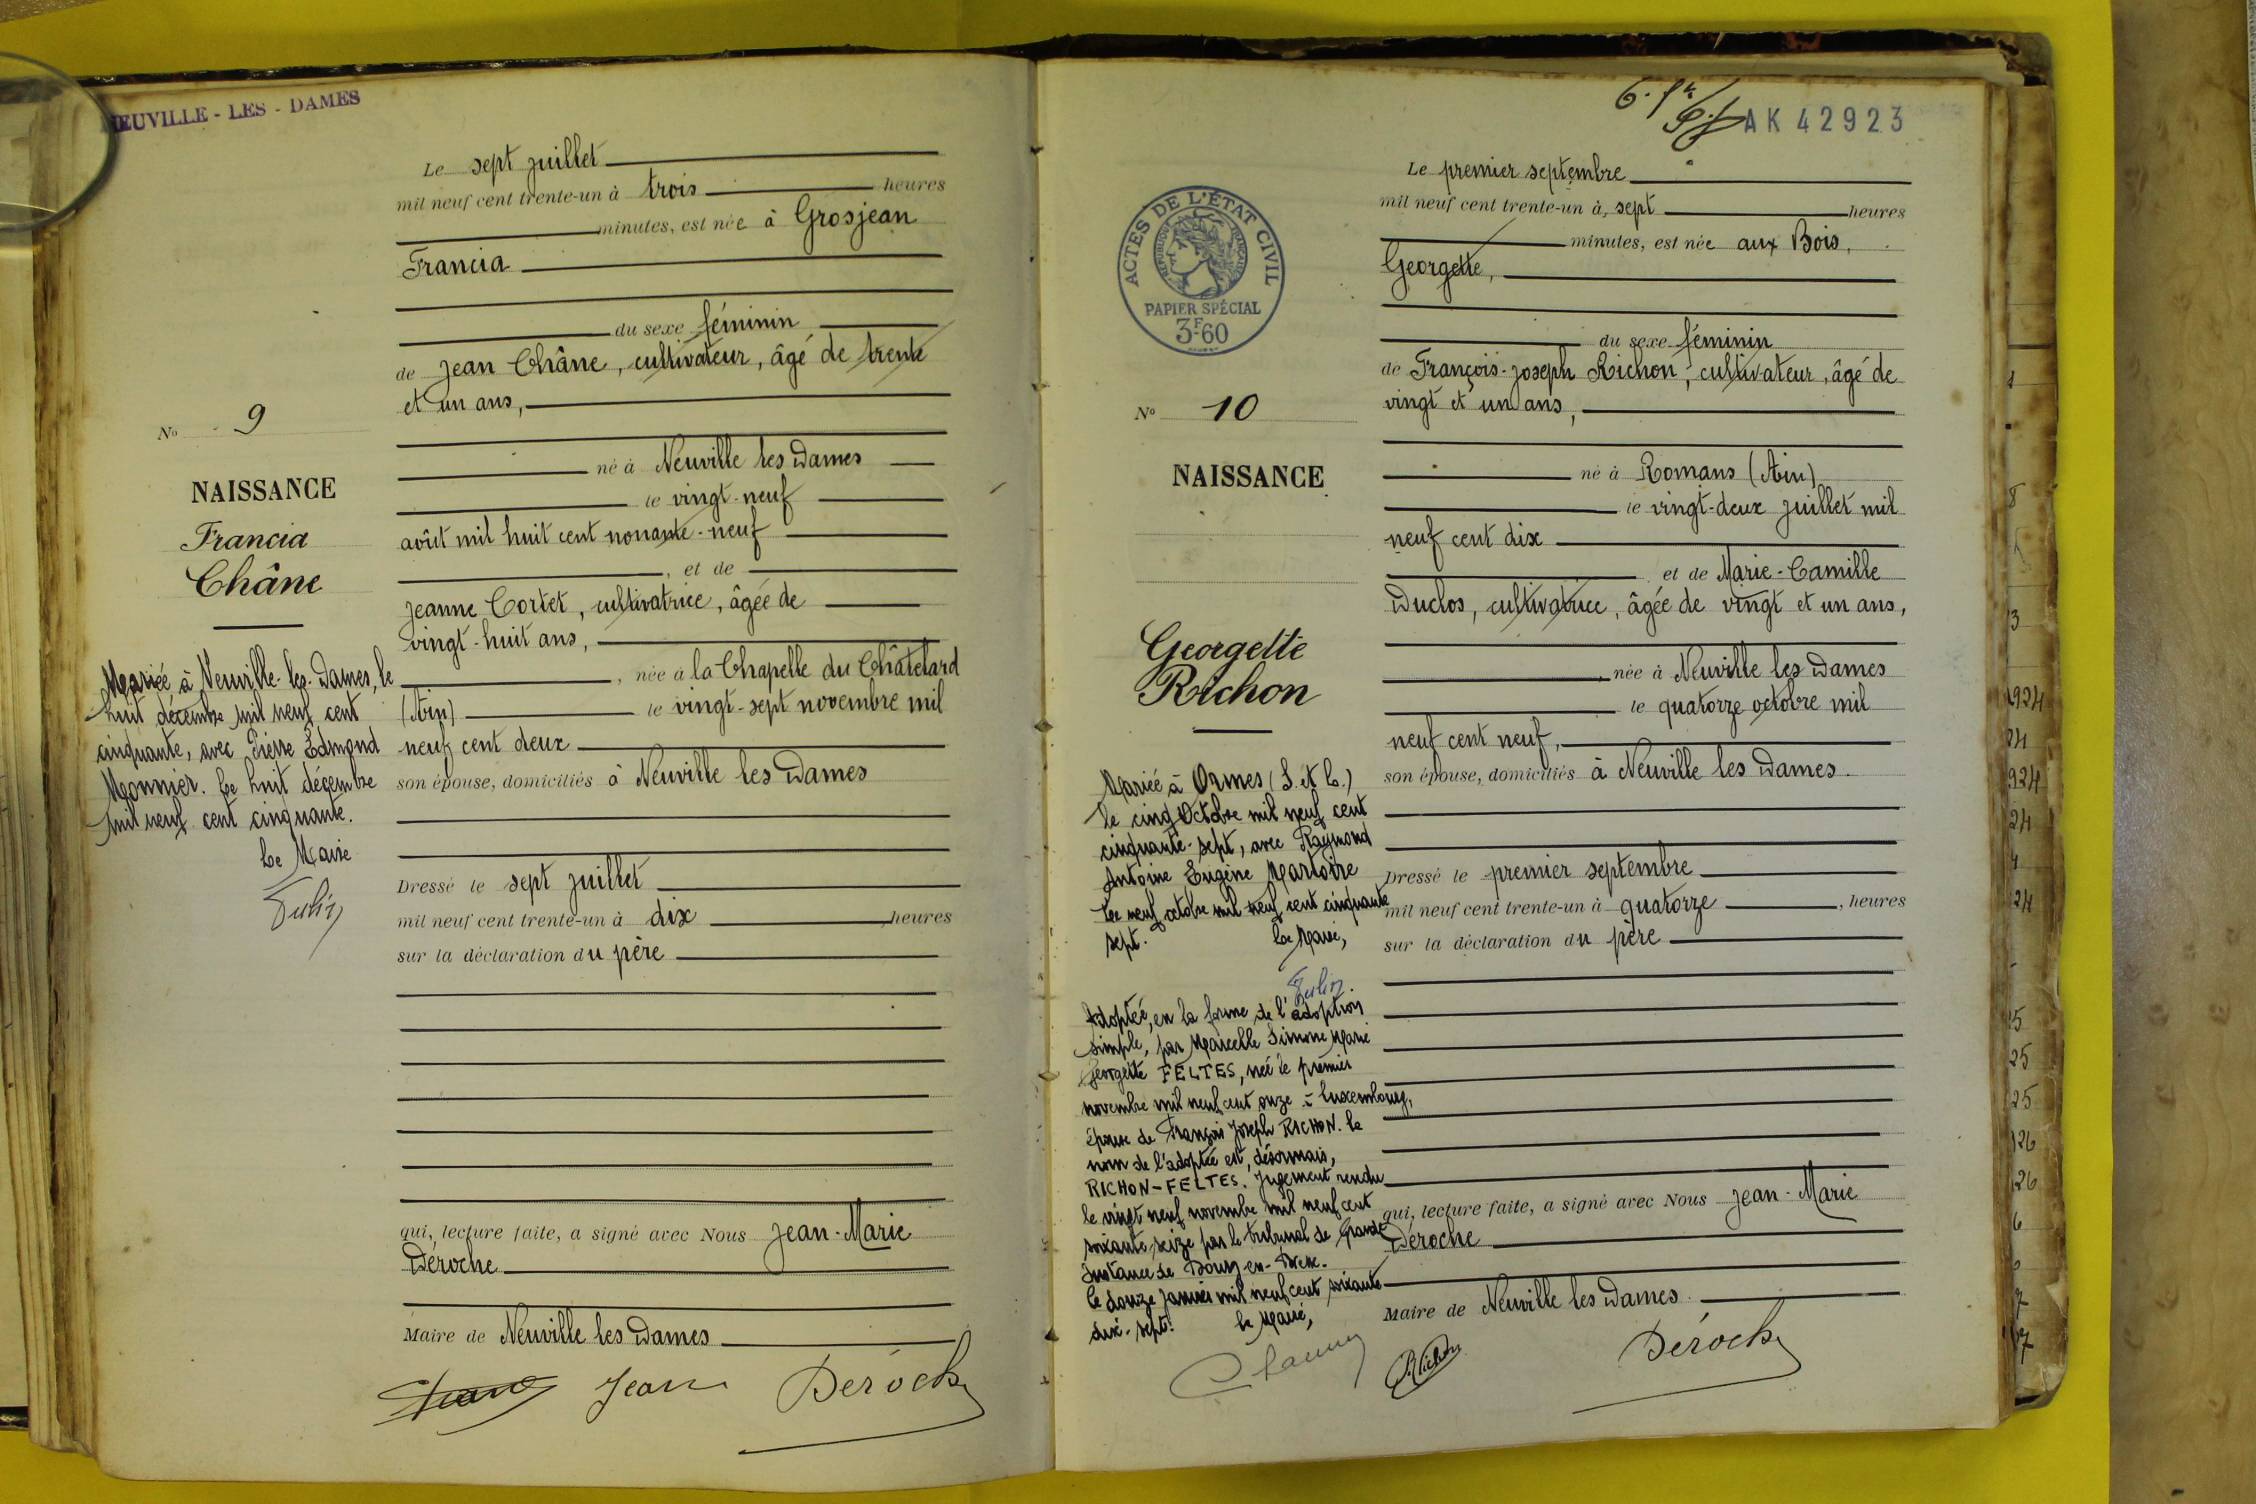 NEUVILLE - LES - DAMES
Le sept juillet
mil neuf cent trente-un à trois heures
minutes, est née à Grosjean
Francia
du sexe féminin
de Jean Châne, cultivateur, âgé de trente
et un ans,
né à Neuville les Dames
le vingt-neuf
août mil huit cent nonante-neuf
, et de
Jeanne Cortet, cultivatrice, âgée de
vingt-huit ans,
, née à la Chapelle du Châtelard
(Ain) le vingt-sept novembre mil
neuf cent deux
son épouse, domiciliés à Neuville les Dames
Dressé le sept juillet
mil neuf cent trente-un à dix heures
sur la déclaration du père
qui, lecture faite, a signé avec Nous Jean-Marie
Déroche
Maire de Neuville les Dames
Jean Déroche
No 9
NAISSANCE
Francia
Châne
Mariée à Neuville-les-Dames, le
huit décembre mil neuf cent
cinquante, avec Pierre Edmond
Monnier. Le huit décembre
mil neuf cent cinquante.
Le Maire
AK 42923
ACTES DE L'ÉTAT CIVIL
RÉPUBLIQUE FRANÇAISE
PAPIER SPÉCIAL
3F60
No 10
NAISSANCE
Georgette
Richon
Mariée à Ormes (S. et L.)
le cinq Octobre mil neuf cent
cinquante-sept, avec Raymond
Antoine Eugène Martoire
Le neuf octobre mil neuf cent cinquante
sept. Le Maire,
Adoptée, en la forme de l'adoption
simple, par Marcelle Simone Marie
Georgette FELTES, née le premier
novembre mil neuf cent onze à Luxembourg,
épouse de François Joseph RICHON. le
nom de l'adoptée est, désormais,
RICHON-FELTES. Jugement rendu
le vingt neuf novembre mil neuf cent
soixante seize par le tribunal de Grande
Instance de Bourg-en-Bresse.
le douze janvier mil neuf cent soixante
dix-sept. le Maire,
Le premier septembre
mil neuf cent trente-un à, sept heures
minutes, est née aux Bois,
Georgette,
du sexe féminin
de François-Joseph Richon, cultivateur, âgé de
vingt et un ans,
né à Romans (Ain)
le vingt-deux juillet mil
neuf cent dix
et de Marie-Camille
Duclos, cultivatrice, âgée de vingt et un ans,
, née à Neuville les Dames
le quatorze octobre mil
neuf cent neuf,
son épouse, domiciliés à Neuville les Dames.
Dressé le premier septembre
mil neuf cent trente-un à quatorze, heures
sur la déclaration du père
qui, lecture faite, a signé avec Nous Jean-Marie
Déroche
Maire de Neuville les Dames.
Richon Déroche
1924
24
924
24
24
25
25
126
126